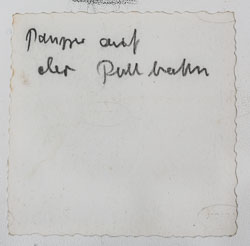 Panzer auf
der Rollbahn